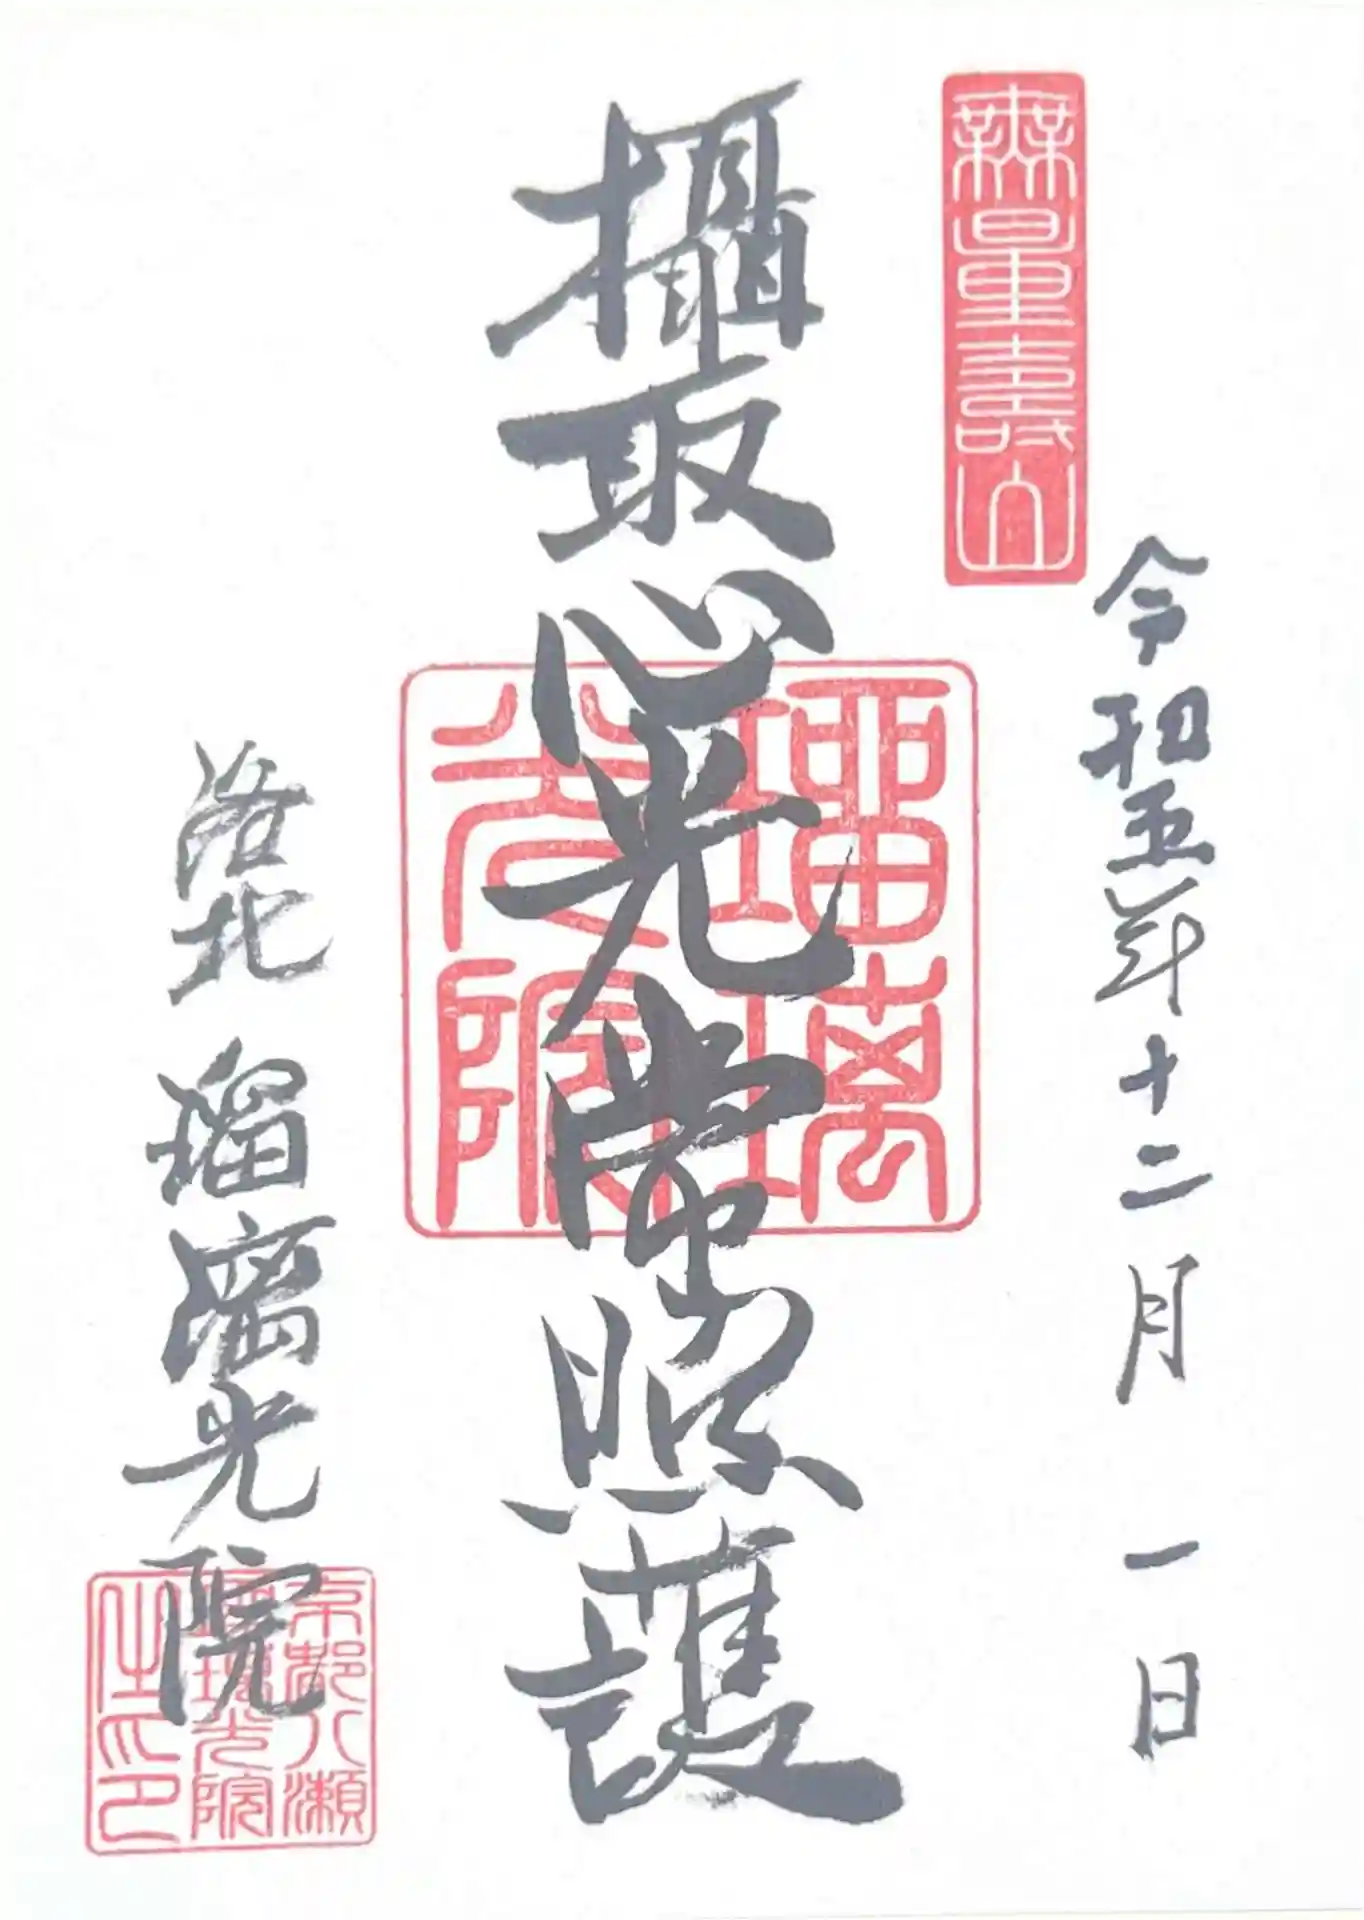 無量壽山
令和五年十二月一日
攝取心光常照護
瑠璃
光院
洛北 瑠璃光院
京都八瀬
瑠璃光院
之印